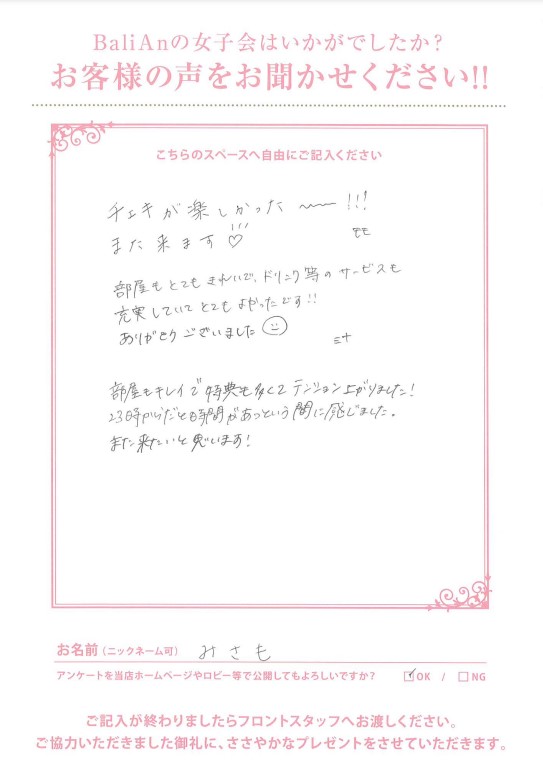 BaliAnの女子会はいかがでしたか?
お客様の声をお聞かせください!!
こちらのスペースへ自由にご記入ください
チェキが楽しかった〜〜!!!
また来ます♡
モモ
部屋もとてもきれいで、ドリンク等のサービスも
充実していてとてもよかったです!!
ありがとうございました☺
ミナ
部屋もキレイで特典も多くてテンション上がりました!
23時からだと時間があっという間に感じました。
また来たいと思います!
お名前(ニックネーム可) みさも
アンケートを当店ホームページやロビー等で公開してもよろしいですか? ☑OK / □NG
ご記入が終わりましたらフロントスタッフへお渡しください。
ご協力いただきました御礼に、ささやかなプレゼントをさせていただきます。